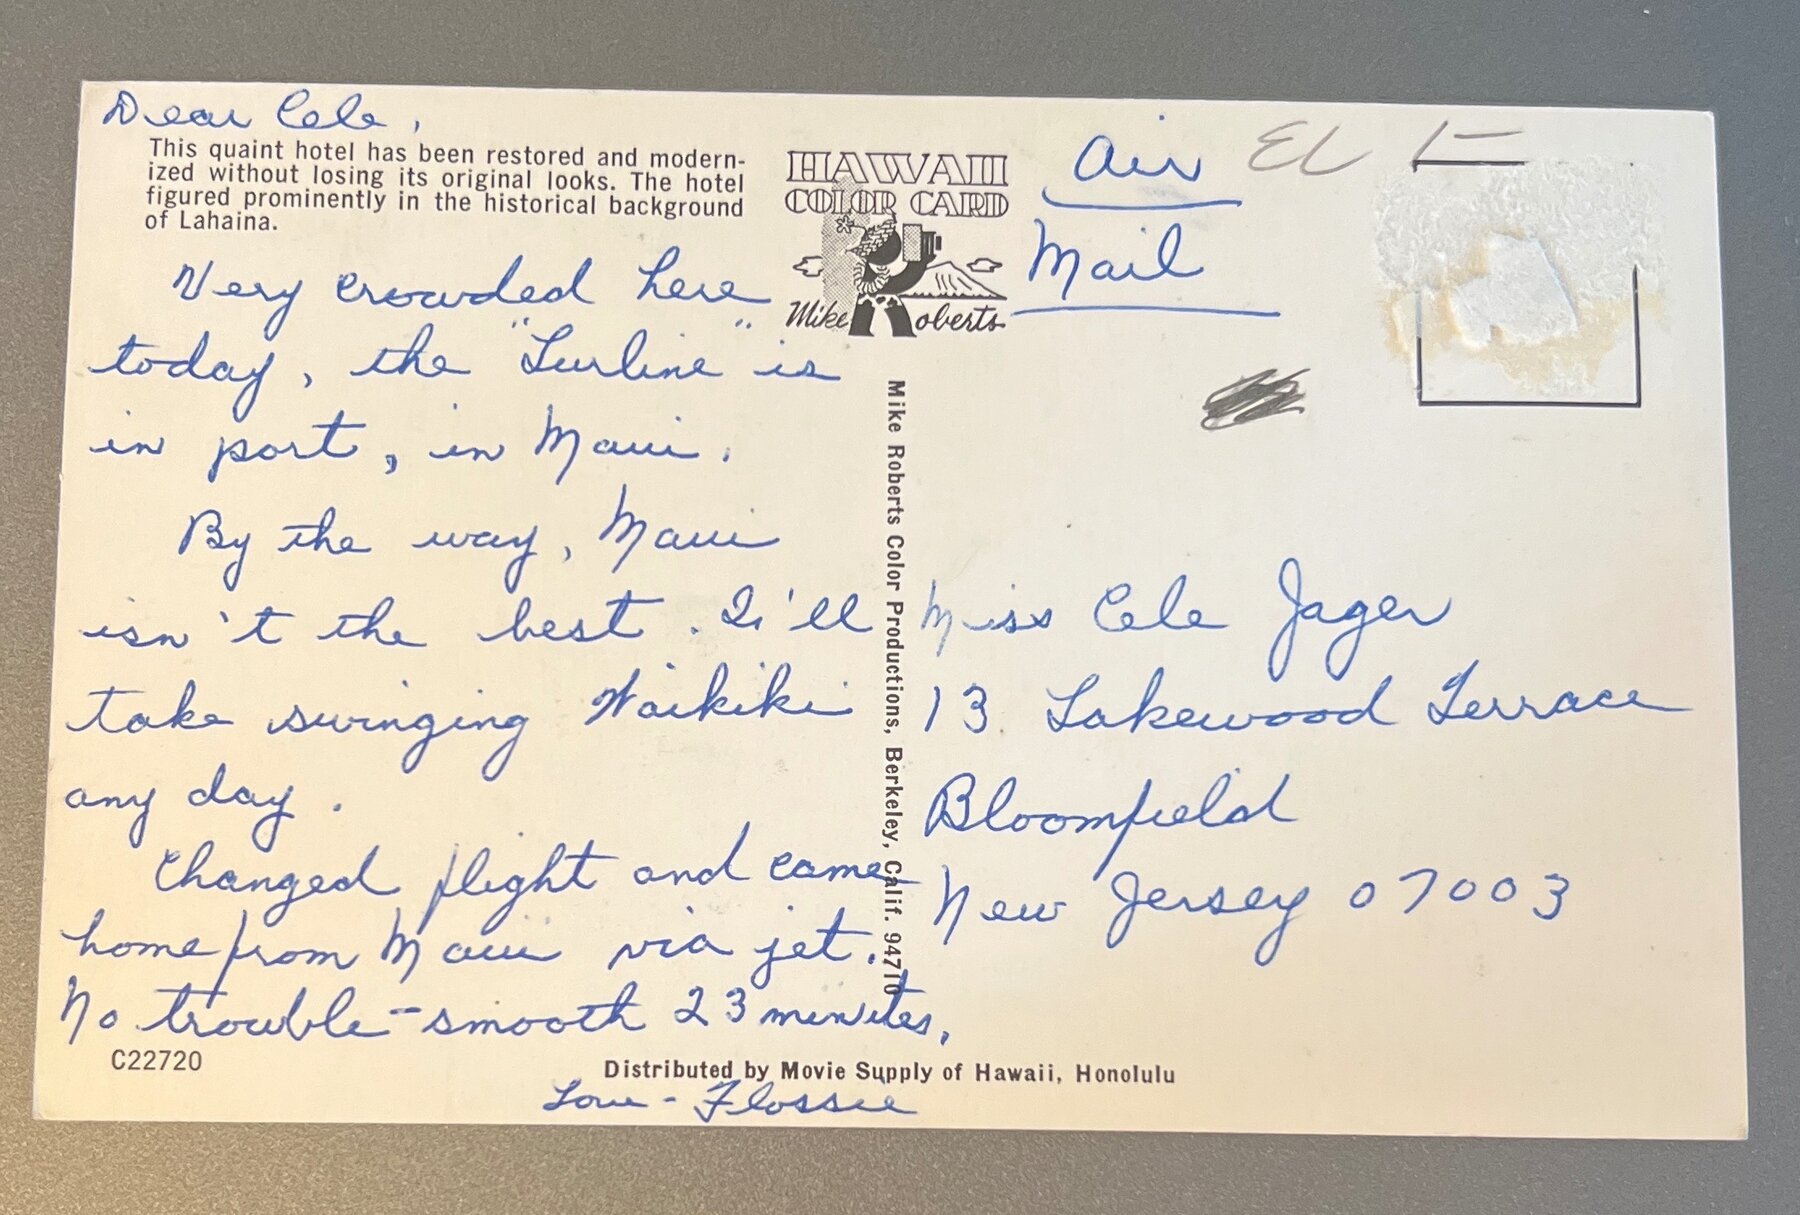 Dear Cele,
This quaint hotel has been restored and modern-
ized without losing its original looks. The hotel
figured prominently in the historical background
of Lahaina.
Very crowded here
today, the "Lurline" is
in port, in Maui.
By the way, Maui
isn't the best. I'll
take swinging Waikiki
any day.
Changed flight and came
home from Maui via jet.
No trouble - smooth 23 minutes.
Love - Flossie
C22720
HAWAII
COLOR CARD
Mike Roberts
Mike Roberts Color Productions, Berkeley, Calif. 94710
Distributed by Movie Supply of Hawaii, Honolulu
Air
Mail
Miss Cele Jager
13 Lakewood Terrace
Bloomfield
New Jersey 07003